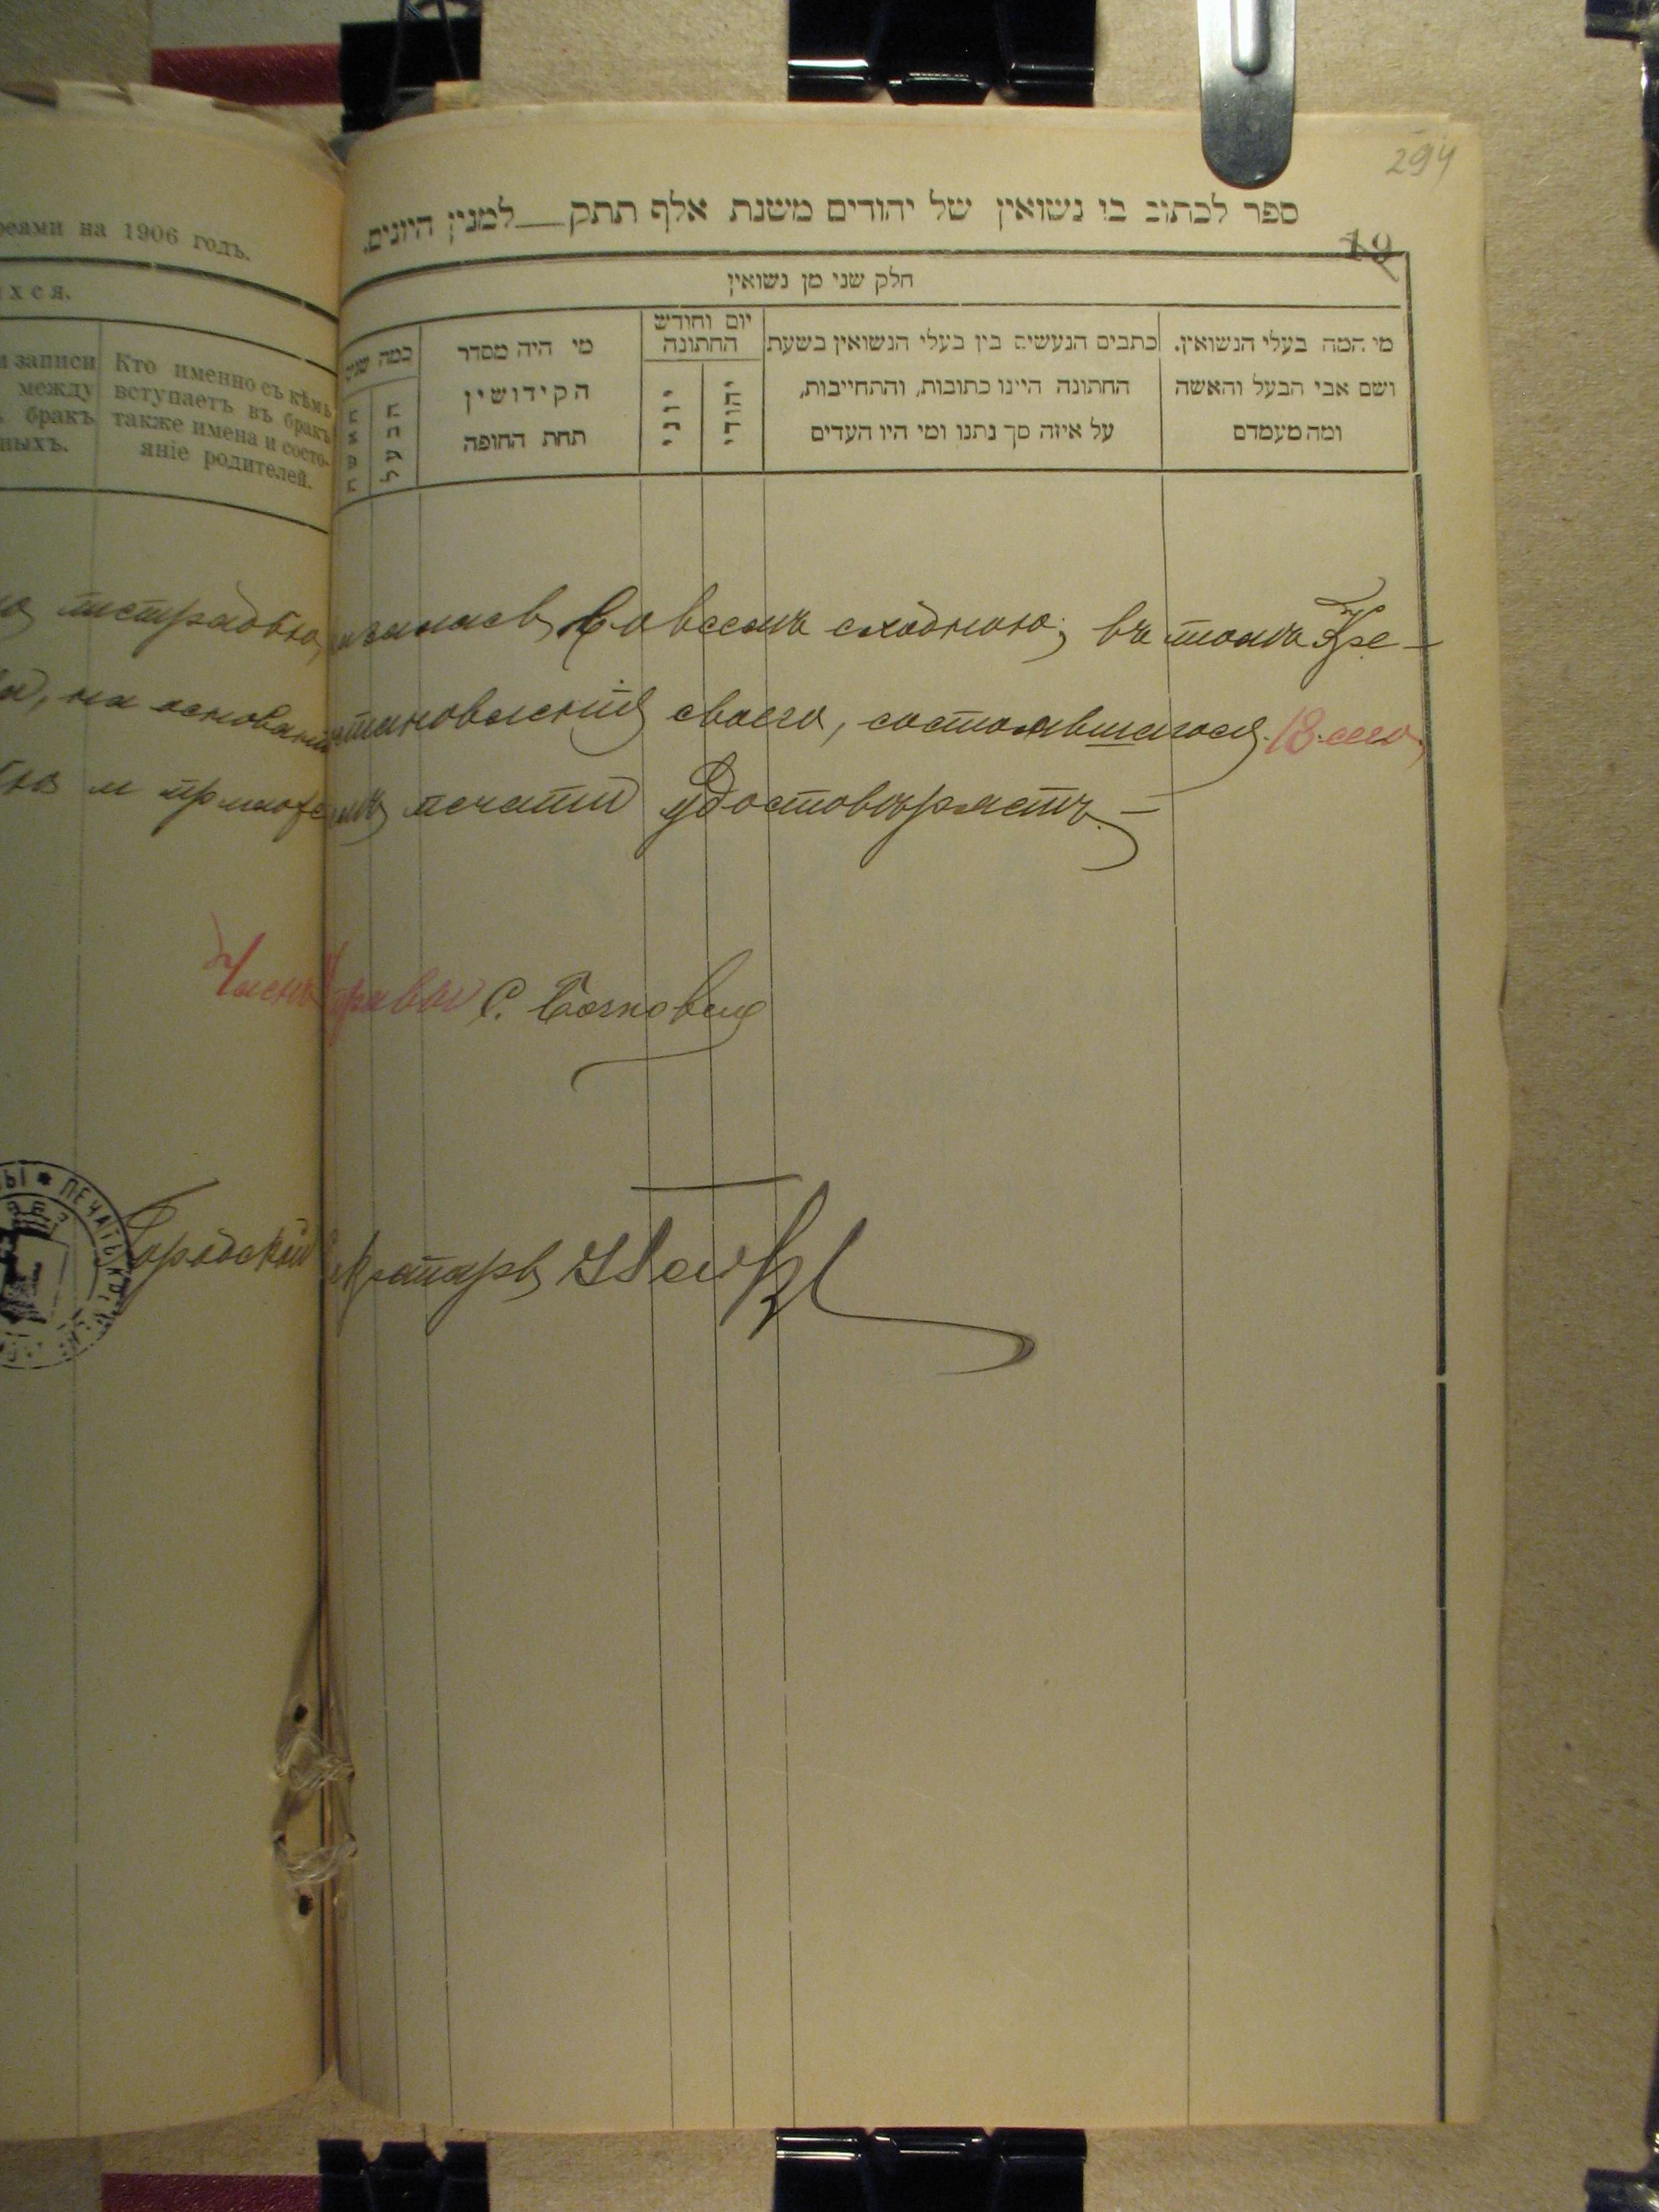 294
реями на 1906 годъ.
хся.
и записи
между
бракъ
ныхъ.
Кто именно съ кѣмъ
вступаетъ въ бракъ
также имена и состо-
яніе родителей.
ספר לכתוב בו נשואין של יהודים משנת אלף תתק___למנין היונים.
19
חלק שני מן נשואין
מי המה בעלי הנשואין.
ושם אבי הבעל והאשה
ומה מעמדם
כתבים הנעשים בין בעלי הנשואין בשעת
החתונה היינו כתובות, והתחייבות,
על איזה סך נתנו ומי היו העדים
יום וחודש
החתונה
יהודי
יוני
מי היה מסדר
הקידושין
תחת החופה
כמה שנים
הבעל
האשה
тетрадью, оказалась во всемъ сходною; въ томъ Кре-
на основаніи постановленія своего, состоявшагося 18 сего
и приложеніемъ печати удостовѣряетъ.
Членъ Управы С.
Городской Секретарь
ПЕЧАТЬ